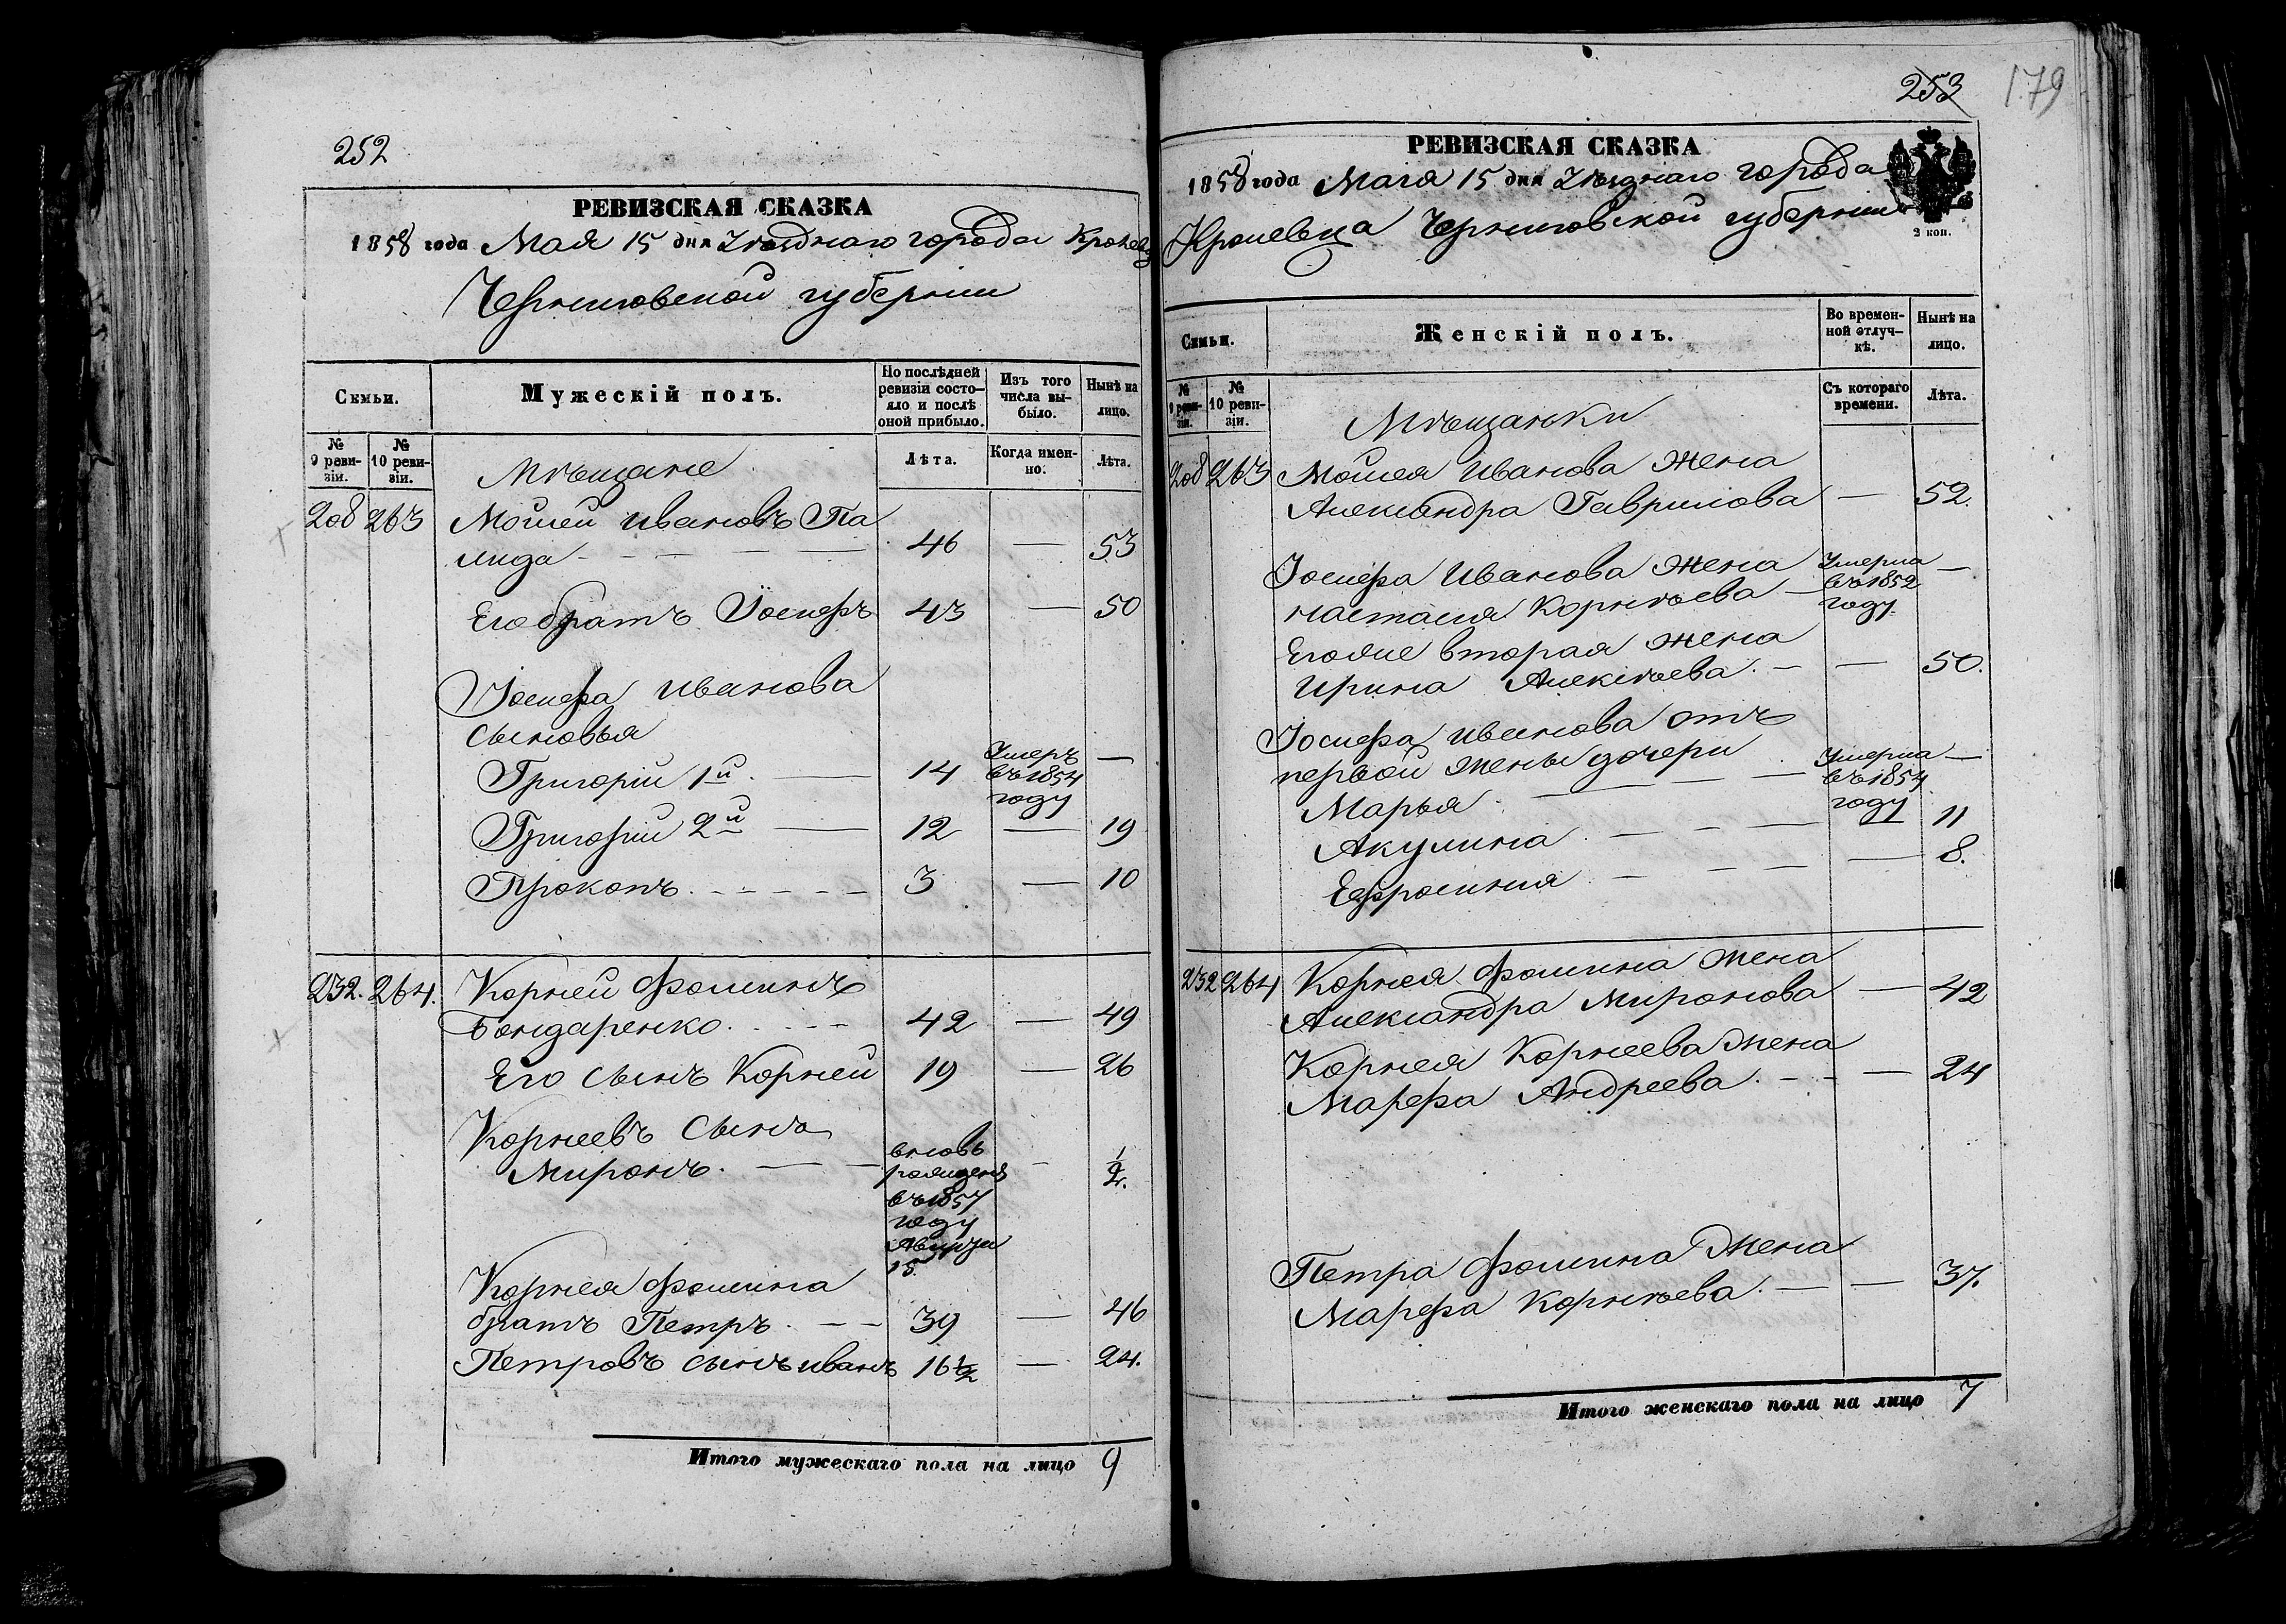 252
РЕВИЗСКАЯ СКАЗКА
1858 года Мая 15 дня Уѣзднаго города Кролевца
Черниговской губерніи
Семьи.
Мужескій полъ.
По послѣдней ревизіи состояло и послѣ оной прибыло.
Изъ того числа выбыло.
Нынѣ на лицо.
№ 9 ревизіи.
№ 10 ревизіи.
Лѣта.
Когда именно.
Лѣта.
Мѣщане
208 263 Мойсей Ивановъ Па
лида 46 — 53
Его братъ Іосифъ 43 — 50
Іосифа Иванова
сыновья
Григорій 1й 14 Умеръ въ 1854 году —
Григорій 2й 12 — 19
Прокопъ 3 — 10
232. 264. Корней Фоминъ
Бондаренко 42 — 49
Его сынъ Корней 19 — 26
Корнеевъ сынъ
Миронъ вновь рожденъ въ 1857 году Августа 15. - 1/2.
Корнея Фомина
братъ Петръ 39 — 46
Петровъ сынъ Иванъ 16 1/2 — 24.
Итого мужескаго пола на лицо 9
253 179
РЕВИЗСКАЯ СКАЗКА
1858 года Мая 15 дня Уѣзднаго города
Кролевца Черниговской губерніи
2 коп.
Семьи.
Женскій полъ.
Во временной отлучкѣ.
Нынѣ на лицо.
№ 9 ревизіи.
№ 10 ревизіи.
Съ котораго времени.
Лѣта.
Мѣщанки
208 263 Мойсея Иванова жена
Александра Гаврилова — 52.
Іосифа Иванова жена
Настасия Корнѣева Умерла въ 1852 году. —
Его же вторая жена
Ирина Алексѣева — 50.
Іосифа Иванова отъ
первой жены дочери
Марья Умерла въ 1854 году —
Акулина — 11
Ефросиния — 8.
232 264 Корнея Фомина жена
Александра Миронова — 42
Корнея Корнеева жена
Марфа Андреева — 24
Петра Фомина жена
Марфа Корнѣева — 37.
Итого женскаго пола на лицо 7